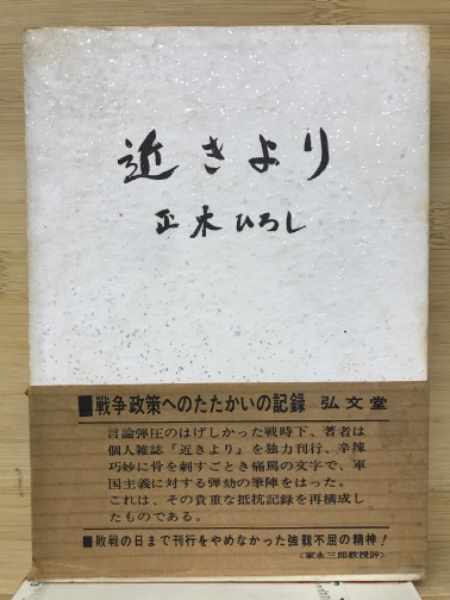 近きより
正木ひろし
■戦争政策へのたたかいの記録 弘文堂
言論弾圧のはげしかった戦時下、著者は
個人雑誌『近きより』を独力刊行、辛辣
巧妙に骨を刺すごとき痛罵の文字で、軍
国主義に対する弾劾の筆陣をはった。
これは、その貴重な抵抗記録を再構成し
たものである。
■敗戦の日まで刊行をやめなかった強靱不屈の精神!
〈家永三郎教授評〉